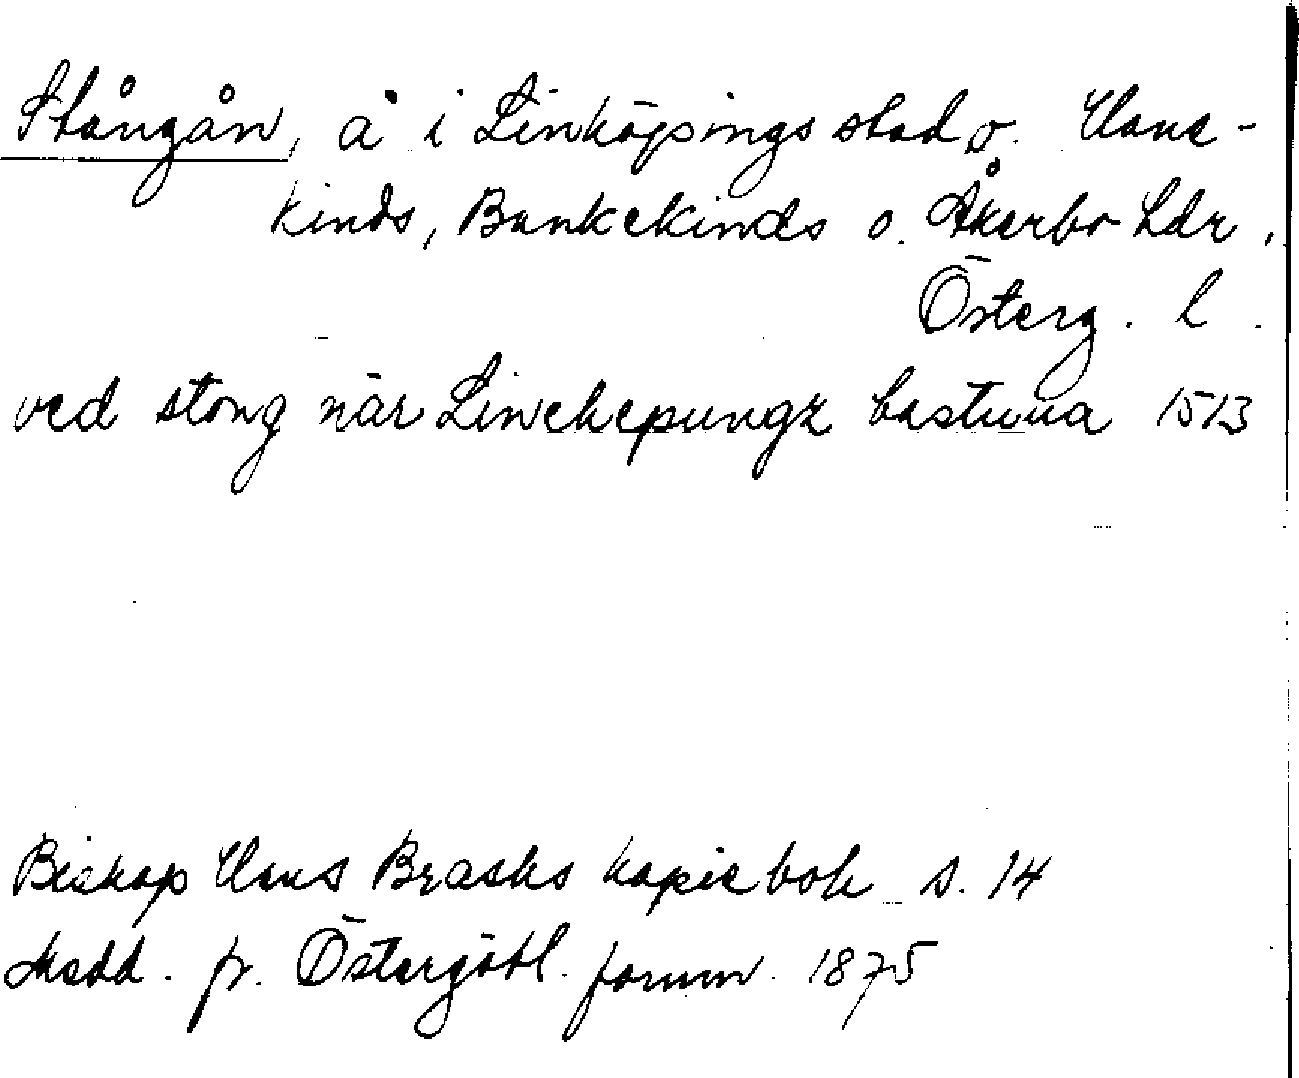 Stångån, å i Linköpings stad o. Hane-
kinds, Bankekinds o. Åkerbo hdr,
Österg. l.
ved stong när Linchepungx bastuua 1513
Biskop Hans Brasks kopiebok s. 14
Medd. fr. Östergötl. fornm. 1875